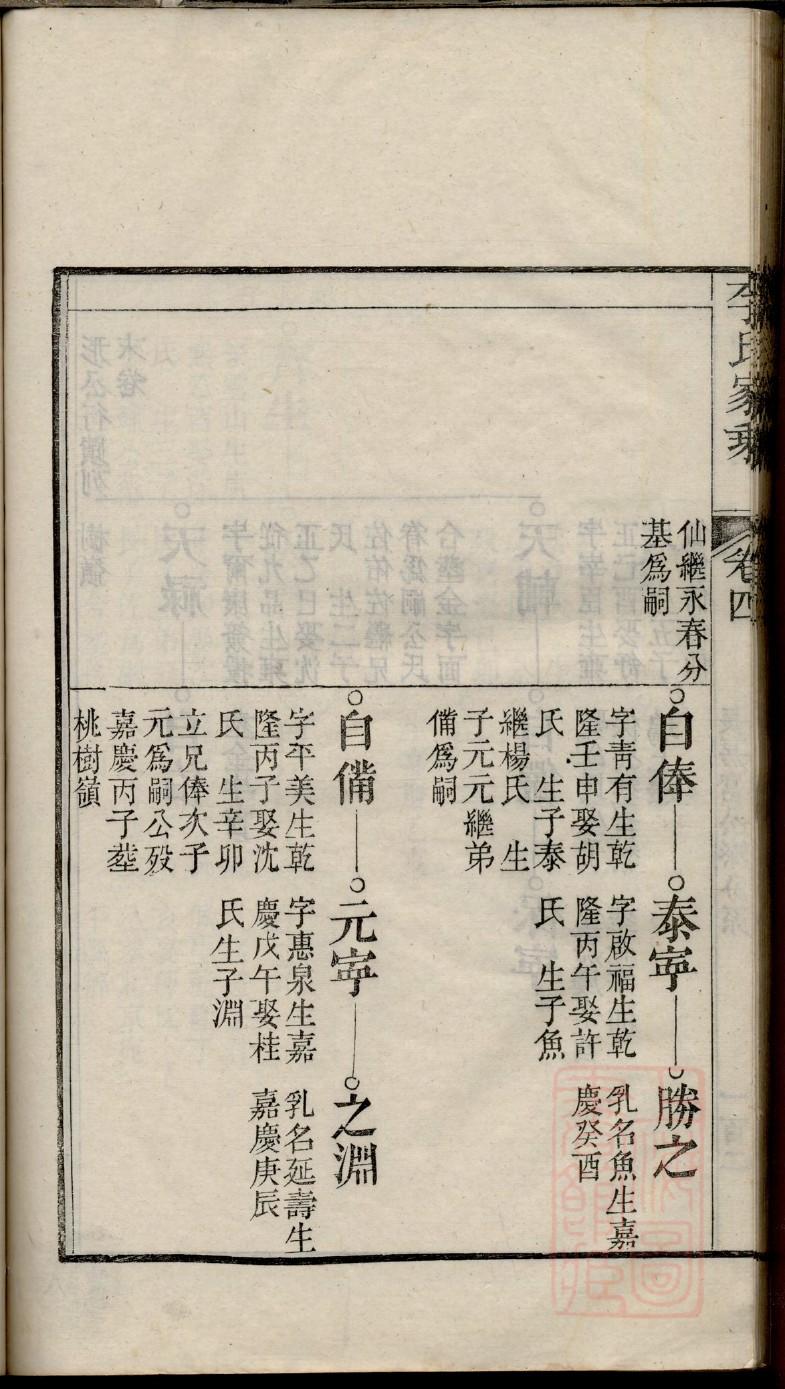 李氏家乘
卷四
仙繼永春分
基為嗣
自俸
字青有生乾
隆壬申娶胡
氏　生子泰
繼楊氏　生
子元元繼弟
備為嗣
泰寕
字啟福生乾
隆丙午娶許
氏　生子魚
勝之
乳名魚生嘉
慶癸酉
自備
字平美生乾
隆丙子娶沈
氏　生辛卯
立兄俸次子
元為嗣公歿
嘉慶丙子塟
桃樹嶺
元寕
字惠泉生嘉
慶戊午娶桂
氏生子淵
之淵
乳名延壽生
嘉慶庚辰